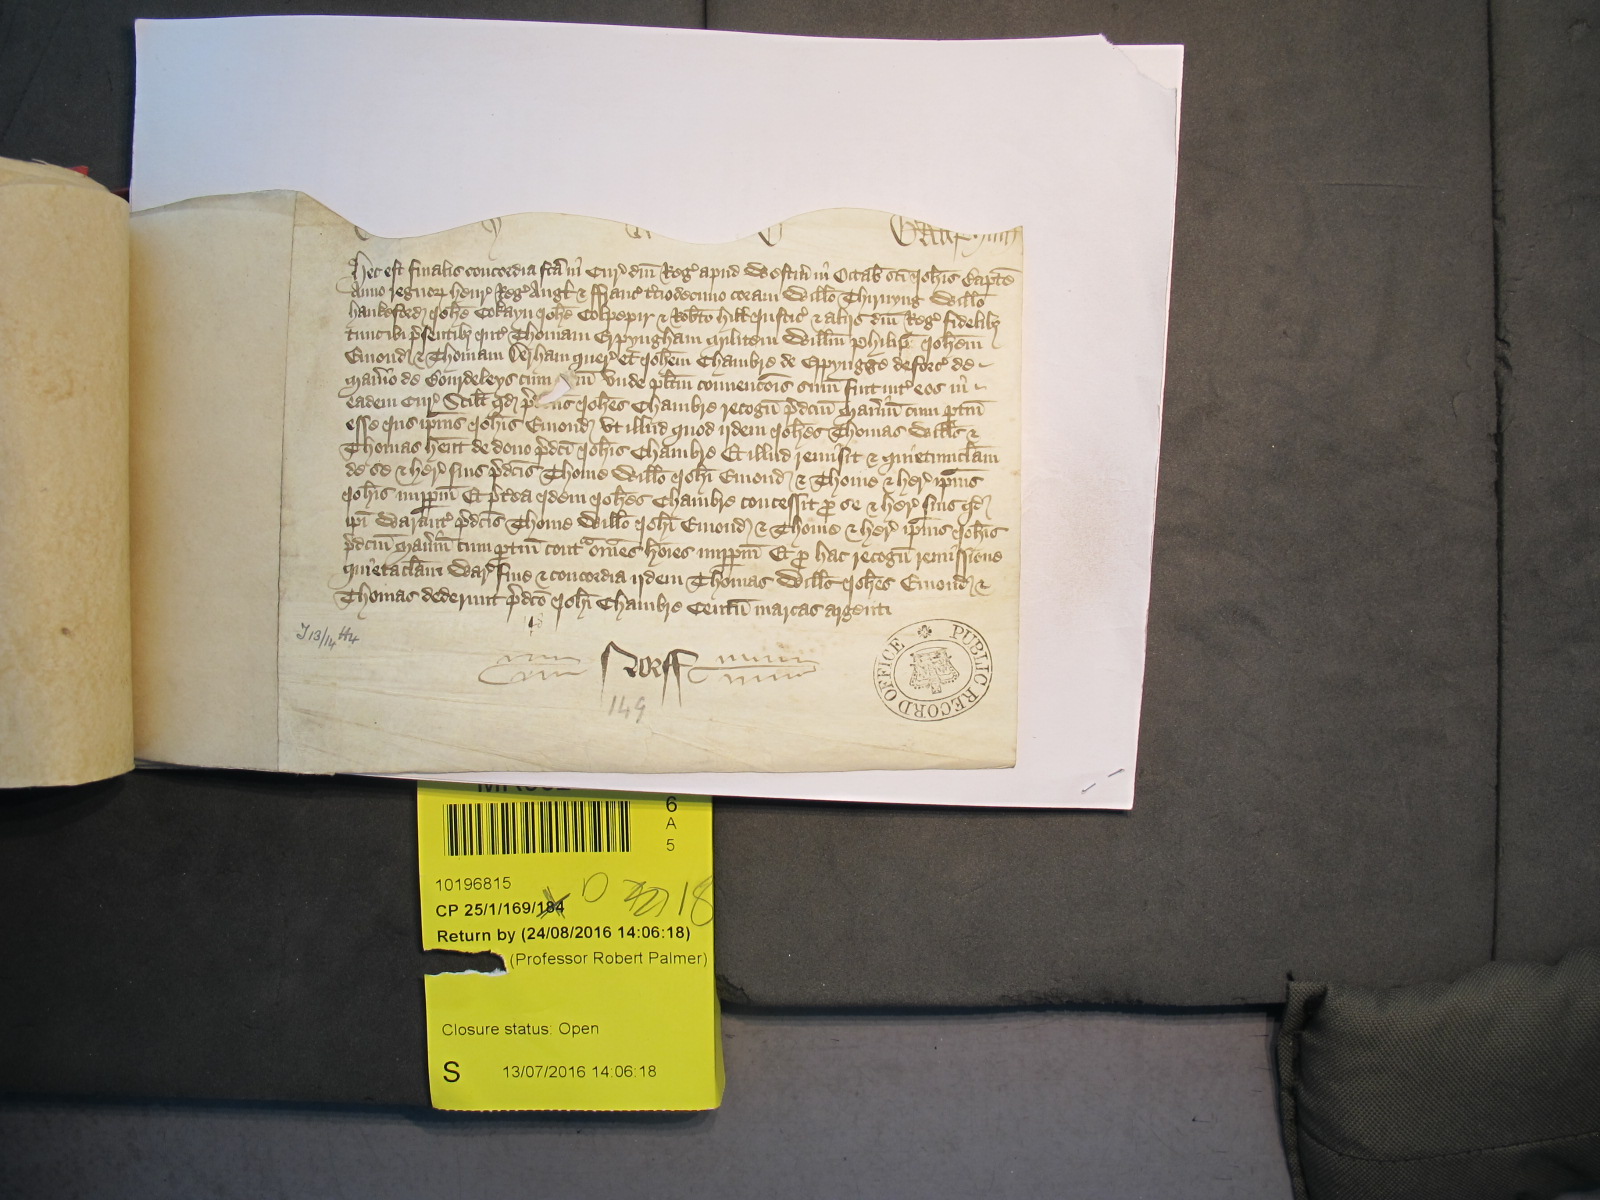 Hec est finalis concordia fca in Cur dni Reg apud Westm in Octab sci Johis Bapte
Anno regnor Henr Reg Angl & ffranc tciodecimo coram Willo Thirnyng Willo
Hankeford Johe Cokayn Johe Colpepir & Robto Hill Justic & aliis dni Reg fidelibz
tunc ibi psentibz int Thomam Erpyngham militem Willm Philip Johem
Emond & Thomam Derham quer et Johem Chambre de deforc de
Man'io de Gourdeleys cum unde plitm convencois sum fuit int eos in
eadem Cur Scilt qd Johes Chambre recogn pdcm Man'ium cum ptin
esse jus ipius Johis Emond Ut illud quod ijdem Johes Thomas Wills &
Thomas hent de dono pdci Johis Chambre Et illud remisit & quietumclam
de se & her suis pdcis Thome Willo Johi Emond & Thome & her ipius
Johis imppm Et pterea idem Johes Chambre concessit p se & her suis qd
ipi Warant pdcis Thome Willo Johi Emond & Thome & her ipius Johis
pdcm Man'ium cum ptin cont omes hoies imppm Et p hac recogn remissione
quietaclam War fine & concordia ijdem Thomas Wills Johes Emond &
Thomas dederunt pdco Johi Chambre Centum marcas argenti
J 13/14 H4
Norff
149
PUBLIC RECORD OFFICE
6
A
5
10196815
CP 25/1/169/184
Return by (24/08/2016 14:06:18)
(Professor Robert Palmer)
Closure status: Open
S 13/07/2016 14:06:18